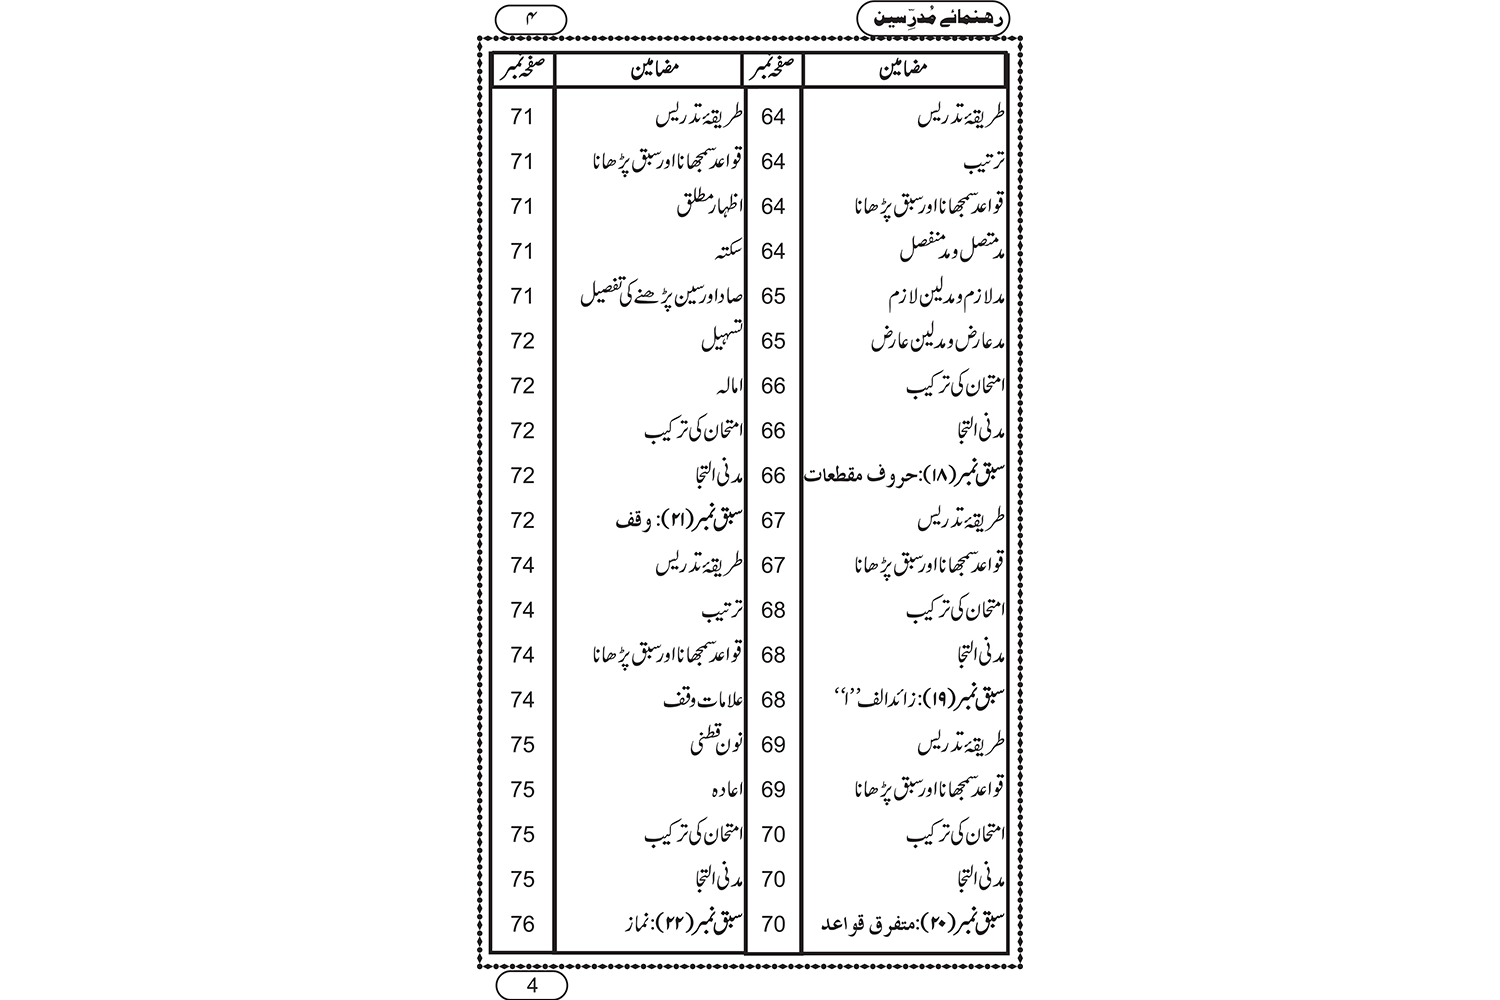 رہنمائے مُدرِّسین ۴
مضامین صفحہ نمبر مضامین صفحہ نمبر
طریقۂ تدریس 64 طریقۂ تدریس 71
ترتیب 64 قواعد سمجھانا اور سبق پڑھانا 71
قواعد سمجھانا اور سبق پڑھانا 64 اظہار مطلق 71
مد متصل و مد منفصل 64 سکتہ 71
مد لازم و مد لین لازم 65 صاد اور سین پڑھنے کی تفصیل 71
مد عارض و مد لین عارض 65 تسہیل 72
امتحان کی ترکیب 66 امالہ 72
مدنی التجا 66 امتحان کی ترکیب 72
سبق نمبر (۱۸): حروف مقطعات 66 مدنی التجا 72
طریقۂ تدریس 67 سبق نمبر (۲۱): وقف 72
قواعد سمجھانا اور سبق پڑھانا 67 طریقۂ تدریس 74
امتحان کی ترکیب 68 ترتیب 74
مدنی التجا 68 قواعد سمجھانا اور سبق پڑھانا 74
سبق نمبر (۱۹): زائد الف ’’ا‘‘ 68 علامات وقف 74
طریقۂ تدریس 69 نون قطنی 75
قواعد سمجھانا اور سبق پڑھانا 69 اعادہ 75
امتحان کی ترکیب 70 امتحان کی ترکیب 75
مدنی التجا 70 مدنی التجا 75
سبق نمبر (۲۰): متفرق قواعد 70 سبق نمبر (۲۲): نماز 76
4